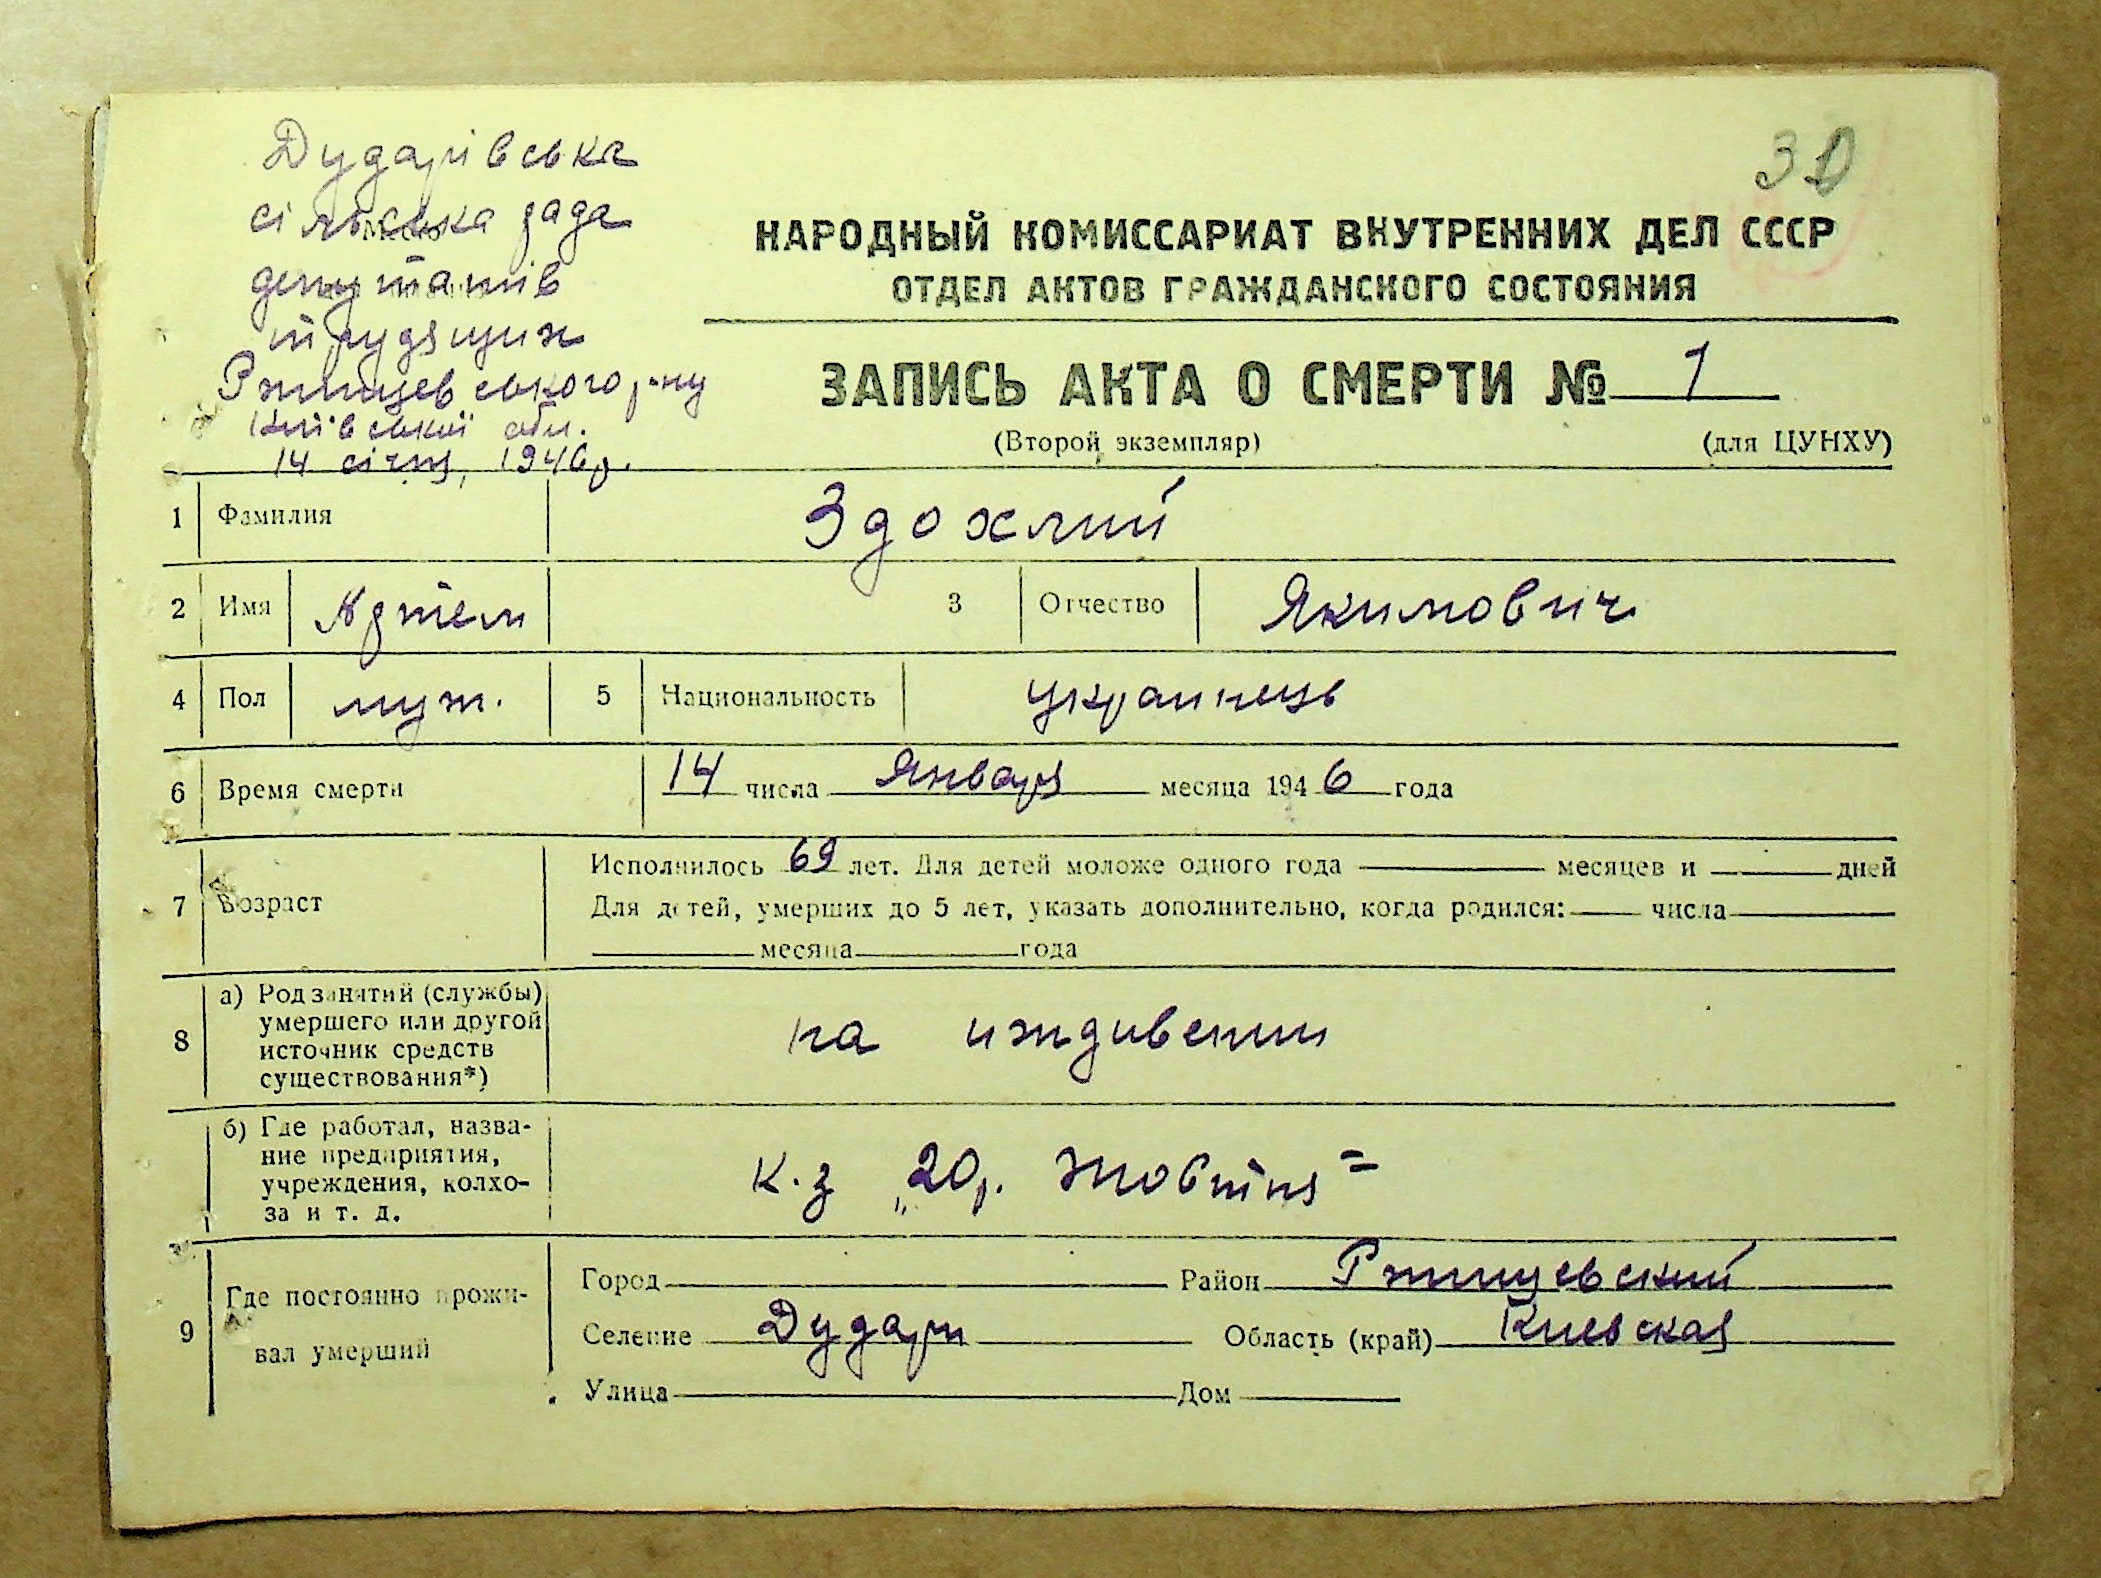 Дударівська
сільська рада
депутатів
трудящих
Ржищевського р-ну
Київської обл.
14 січня, 1946 р.
30
НАРОДНЫЙ КОМИССАРИАТ ВНУТРЕННИХ ДЕЛ СССР
ОТДЕЛ АКТОВ ГРАЖДАНСКОГО СОСТОЯНИЯ
ЗАПИСЬ АКТА О СМЕРТИ № 1
(Второй экземпляр) (для ЦУНХУ)
1 Фамилия Здохлий
2 Имя Артем 3 Отчество Якимович
4 Пол муж. 5 Национальность украинець
6 Время смерти 14 числа Января месяца 1946 года
Исполнилось 69 лет. Для детей моложе одного года месяцев и дней
7 Возраст Для детей, умерших до 5 лет, указать дополнительно, когда родился: числа
месяца года
8 а) Род занятий (службы)
умершего или другой
источник средств
существования*)
на иждивении
б) Где работал, назва-
ние предприятия,
учреждения, колхо-
за и т. д.
к-з „20 р. Жовтня"
9 Где постоянно прожи-
вал умерший
Город Район Ржищевский
Селение Дудари Область (край) Киевская
Улица Дом